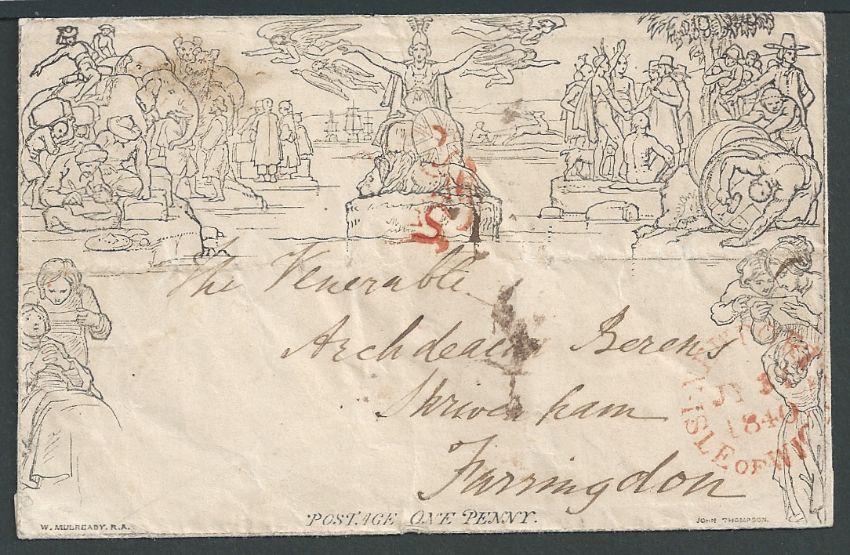 The Venerable
Archdeacon Berens
Shrivenham
Farringdon
JY
1840
ISLE OF WIGHT
W. MULREADY. R.A.
POSTAGE ONE PENNY.
JOHN THOMPSON.